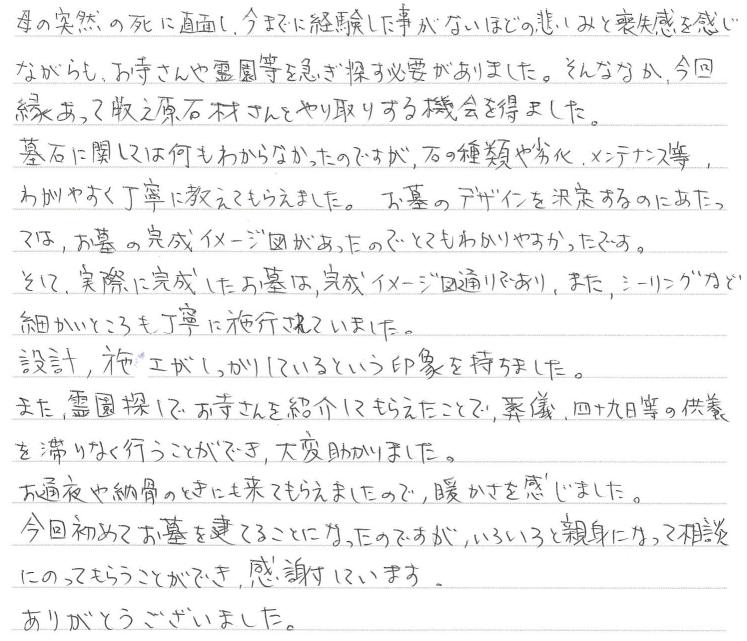 母の突然の死に直面し、今までに経験した事がないほどの悲しみと喪失感を感じ
ながらも、お寺さんや霊園等を急ぎ探す必要がありました。そんななか、今回
縁あって牧之原石材さんとやり取りする機会を得ました。
墓石に関しては何もわからなかったのですが、石の種類や劣化、メンテナンス等、
わかりやすく丁寧に教えてもらえました。 お墓のデザインを決定するのにあたっ
ては、お墓の完成イメージ図があったのでとてもわかりやすかったです。
そして、実際に完成したお墓は、完成イメージ図通りであり、また、シーリングなど
細かいところも丁寧に施行されていました。
設計、施工がしっかりしているという印象を持ちました。
また、霊園探しでお寺さんを紹介してもらえたことで、葬儀、四十九日等の供養
を滞りなく行うことができ、大変助かりました。
お通夜や納骨のときにも来てもらえましたので、暖かさを感じました。
今回初めてお墓を建てることになったのですが、いろいろと親身になって相談
にのってもらうことができ、感謝しています。
ありがとうございました。